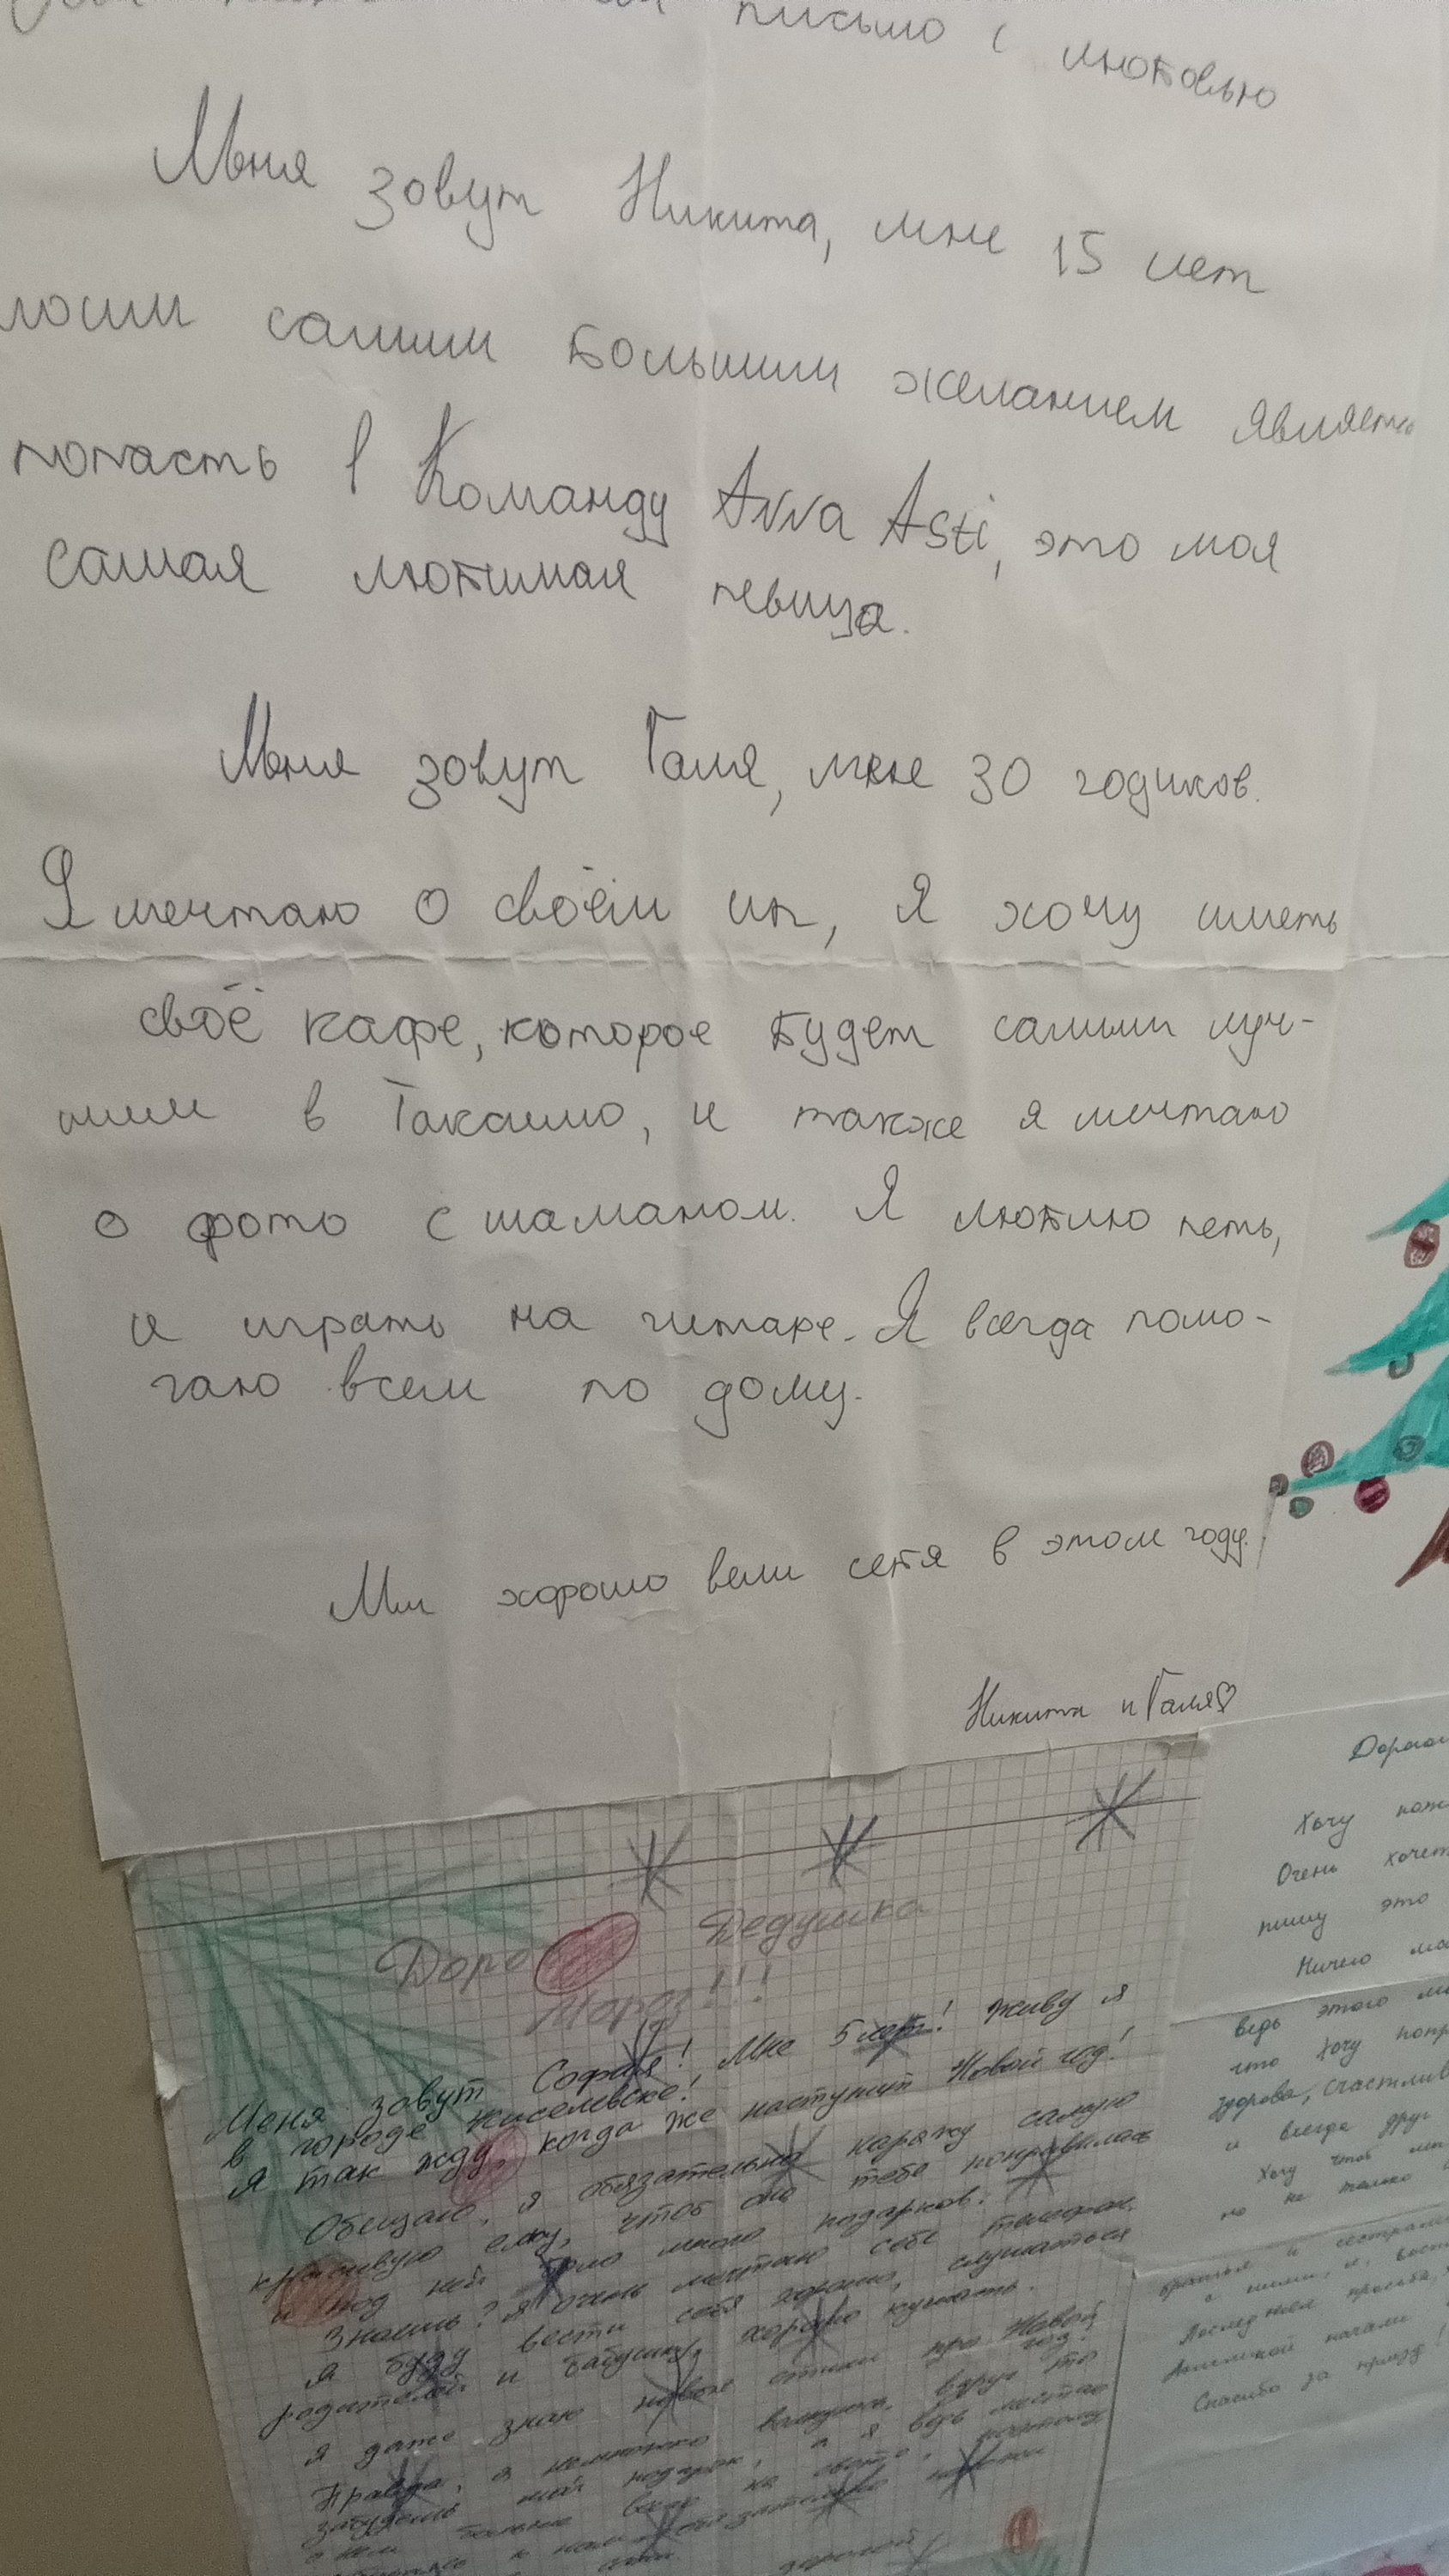 письмо с любовью
Меня зовут Никита, мне 15 лет
моим самым большим желанием является
попасть в Команду Anna Asti, это моя
самая любимая певица.
Меня зовут Галя, мне 30 годиков.
Я мечтаю о своём ип, я хочу иметь
своё кафе, которое будет самым луч-
шим в , и также я мечтаю
о фото с шаманом. Я люблю петь,
и играть на гитаре. Я всегда помо-
гаю всем по дому.
Мы хорошо вели себя в этом году.
Никита и Галя♡
Доро Дедушка
Мороз!!!
Меня зовут София! Мне 5 лет! Живу я
в городе Киселевске!
Я так жду, когда же наступит Новый год!
Обещаю, я обязательно наряжу самую
красивую ёлку, чтоб она тебе понравилась
и под ней было много подарков.
Знаешь? Я очень мечтаю себе телефон.
Я буду вести себя хорошо, слушаться
родителей и бабушку, хорошо кушать.
Я даже знаю новые стихи про Новый
год!
Правда, я немножко волнуюсь, вдруг ты
забудешь мой подарок, а я ведь мечтаю
о нем больше всего на свете, поэтому
Хочу
Очень хочет
пишу это
Ничего
ведь этого
что хочу
здорова, счастлив
и всегда друг
Хочу чтоб
но не только
Последняя просьба,
Спасибо за